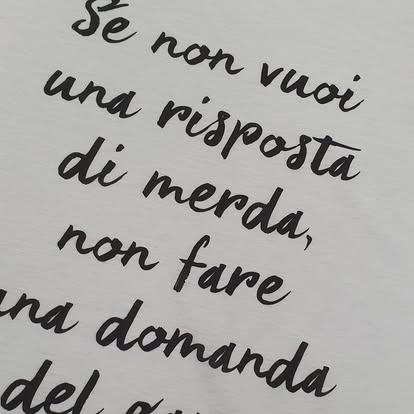 Se non vuoi
una risposta
di merda,
non fare
una domanda
del